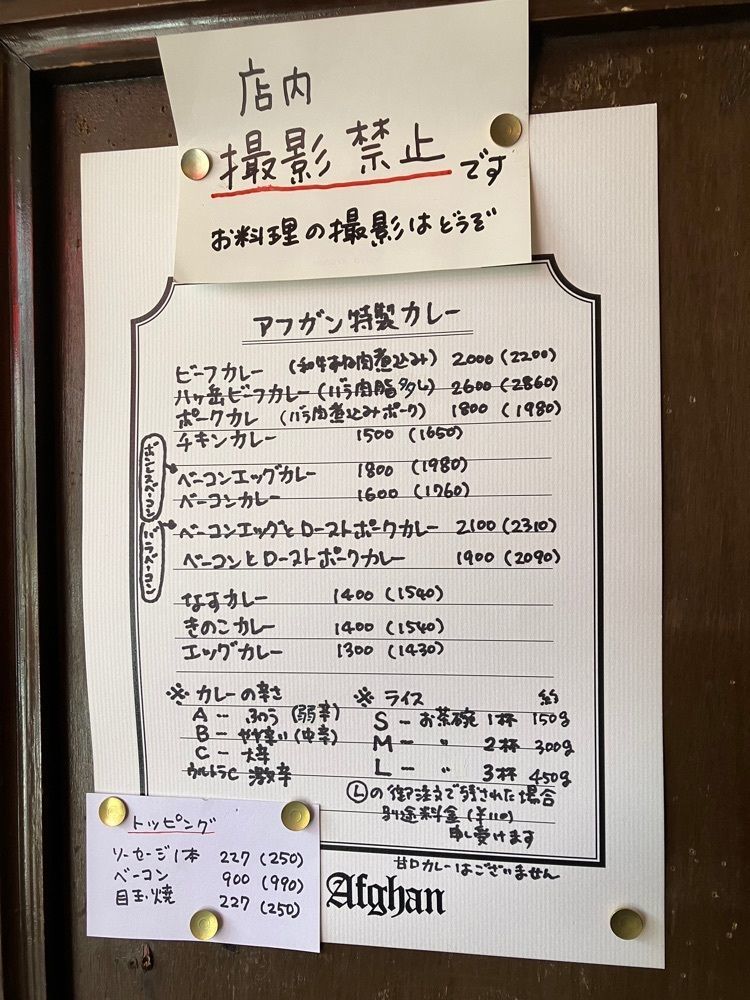 店内
撮影禁止です
お料理の撮影はどうぞ
アフガン特製カレー
ビーフカレー (和牛すね肉煮込み) 2000 (2200)
八ヶ岳ビーフカレー (バラ肉脂多し) 2600 (2860)
ポークカレ (バラ肉煮込みポーク) 1800 (1980)
チキンカレー 1500 (1650)
ベーコンエッグカレー 1800 (1980)
ベーコンカレー 1600 (1760)
ベーコンエッグとローストポークカレー 2100 (2310)
ベーコンとローストポークカレー 1900 (2090)
なすカレー 1400 (1540)
きのこカレー 1400 (1540)
エッグカレー 1300 (1430)
※ カレーの辛さ
A - ふつう (弱辛)
B - やや辛い (中辛)
C - 大辛
ウルトラC 激辛
※ ライス 約
S - お茶碗 1杯 150g
M - 〃 2杯 300g
L - 〃 3杯 450g
Ⓛの御注文で残された場合
別途料金 (¥110)
申し受けます
甘口カレーはございません
トッピング
ソーセージ1本 227 (250)
ベーコン 900 (990)
目玉焼 227 (250)
Afghan